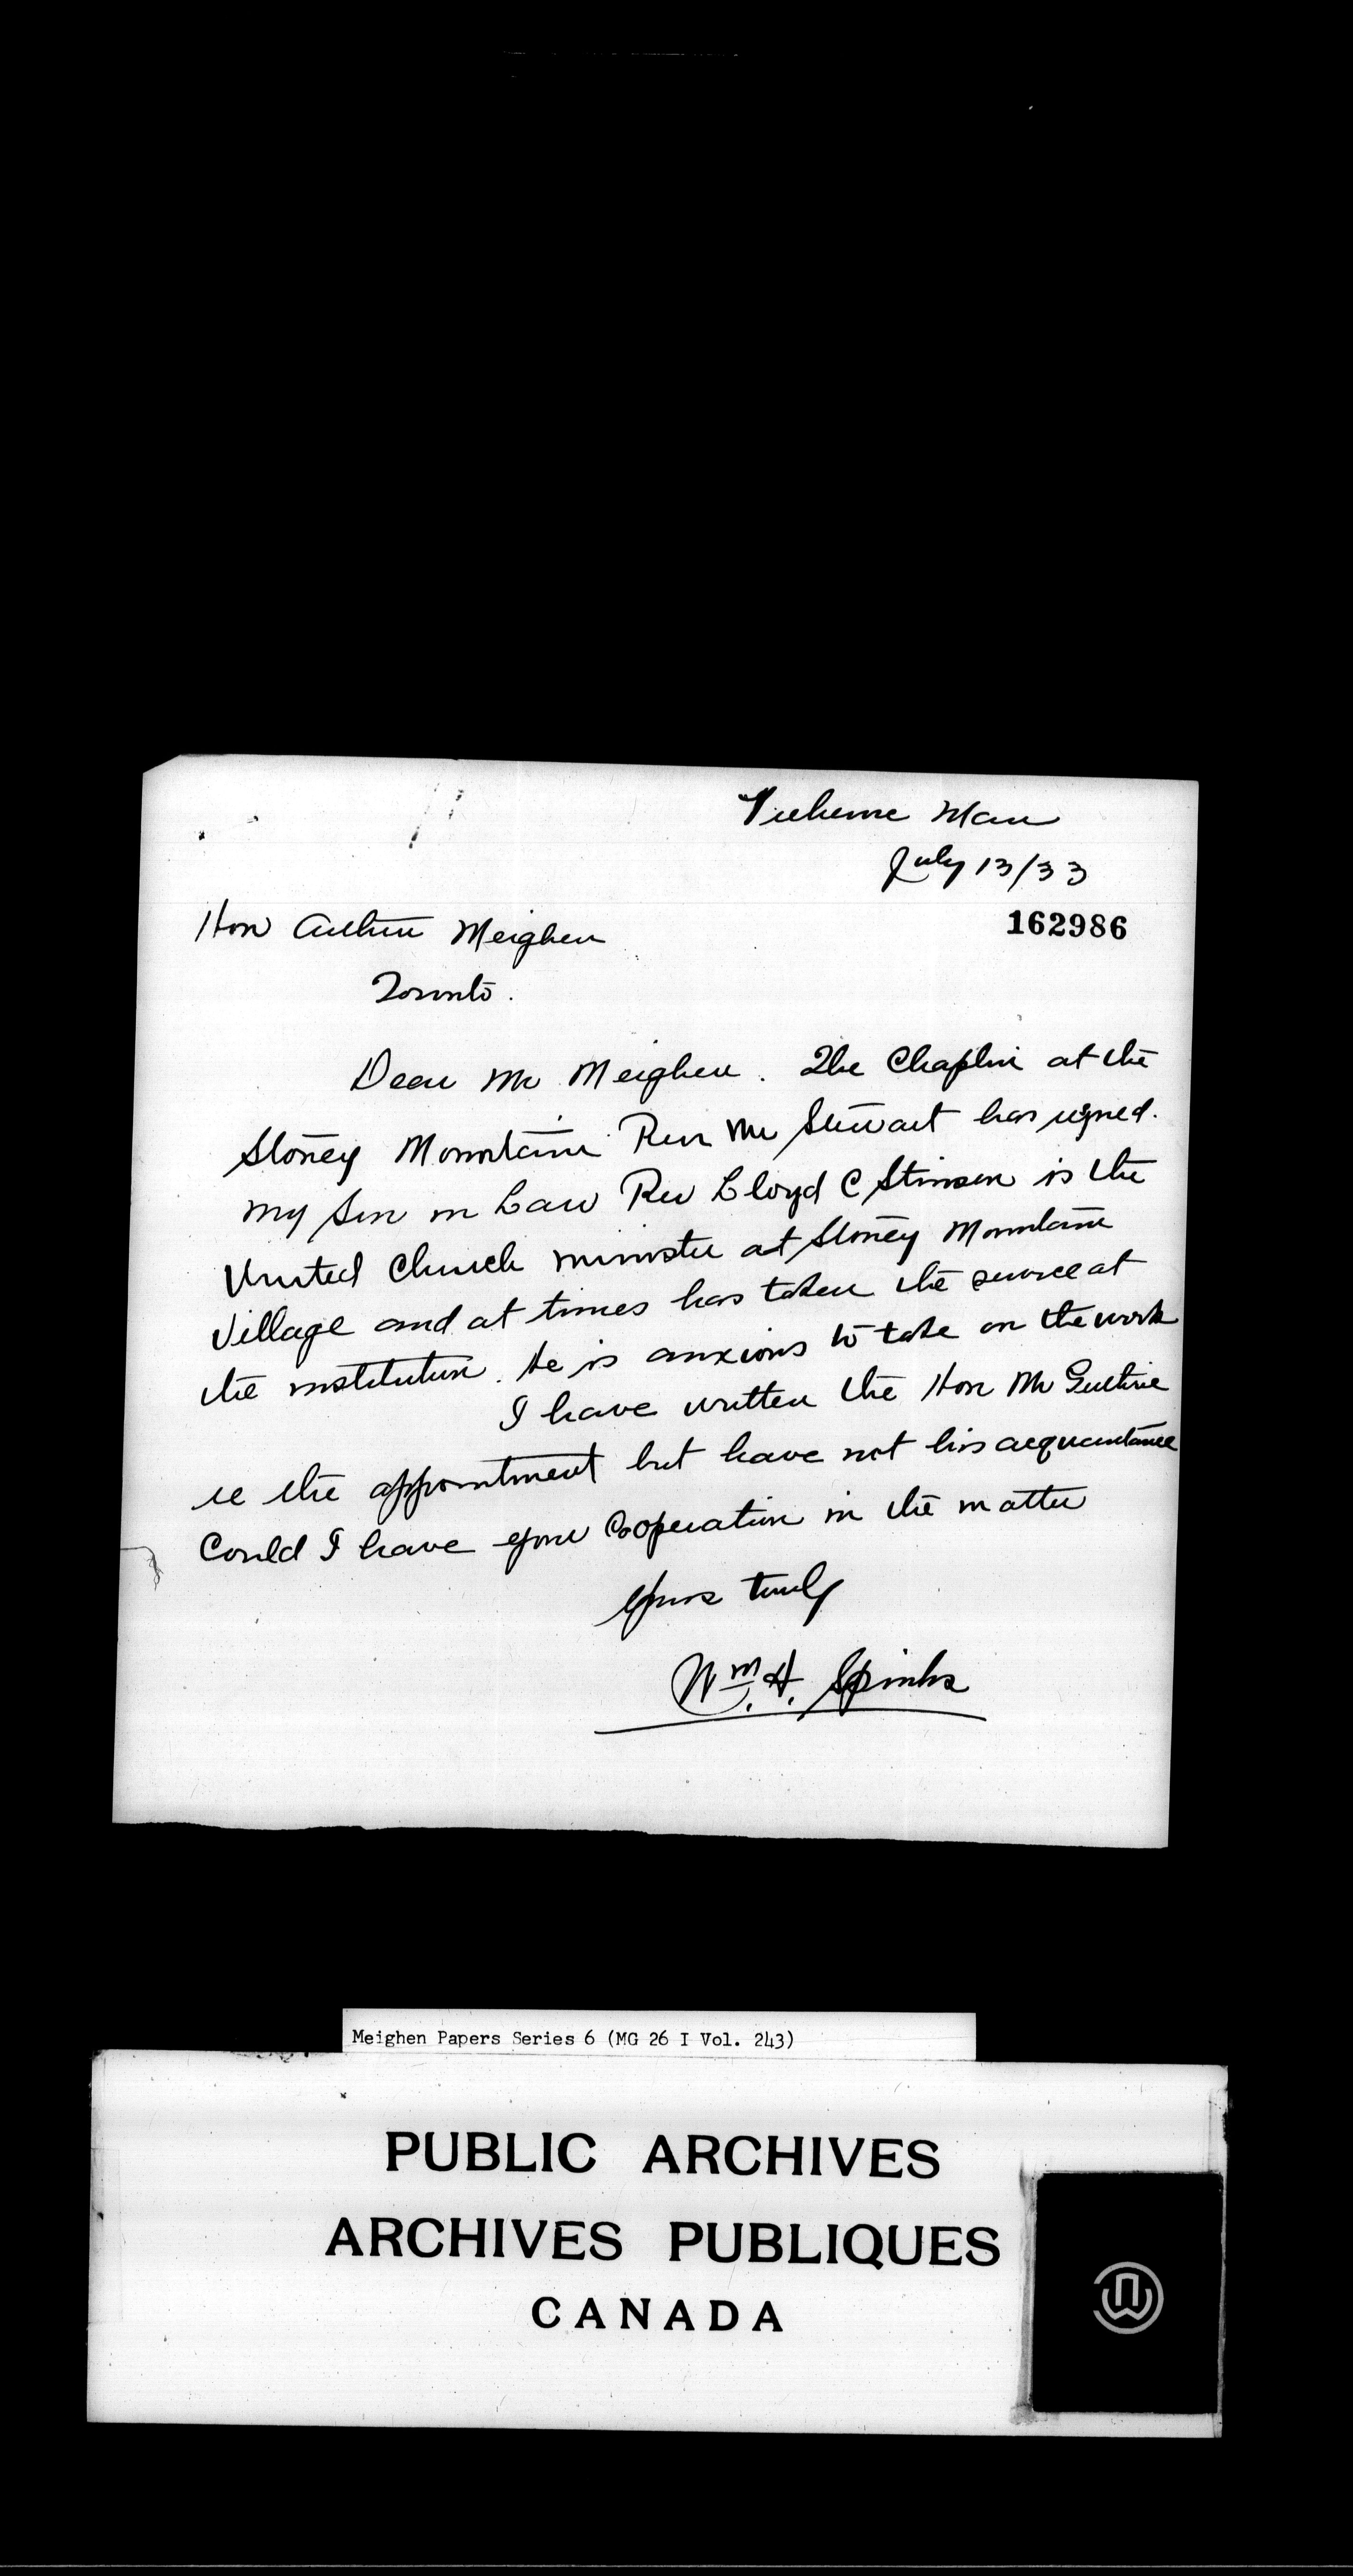 Treherne Man
July 13/33
162986
Hon Arthur Meighen
Toronto.
Dear Mr Meighen. The Chaplin at the
Stoney Mountain Rev Mr Stewart has signed.
My Son in Law Rev Lloyd C Stinson is the
United Church minister at Stoney Mountain
Village and at times has taken the service at
the institution. He is anxious to take on the work
I have written the Hon Mr Guthrie
re the appointment but have not his acquantance
Could I have your Cooperation in the matter
Yours truly
Wm. H. Spinks
Meighen Papers Series 6 (MG 26 I Vol. 243)
PUBLIC ARCHIVES
ARCHIVES PUBLIQUES
CANADA